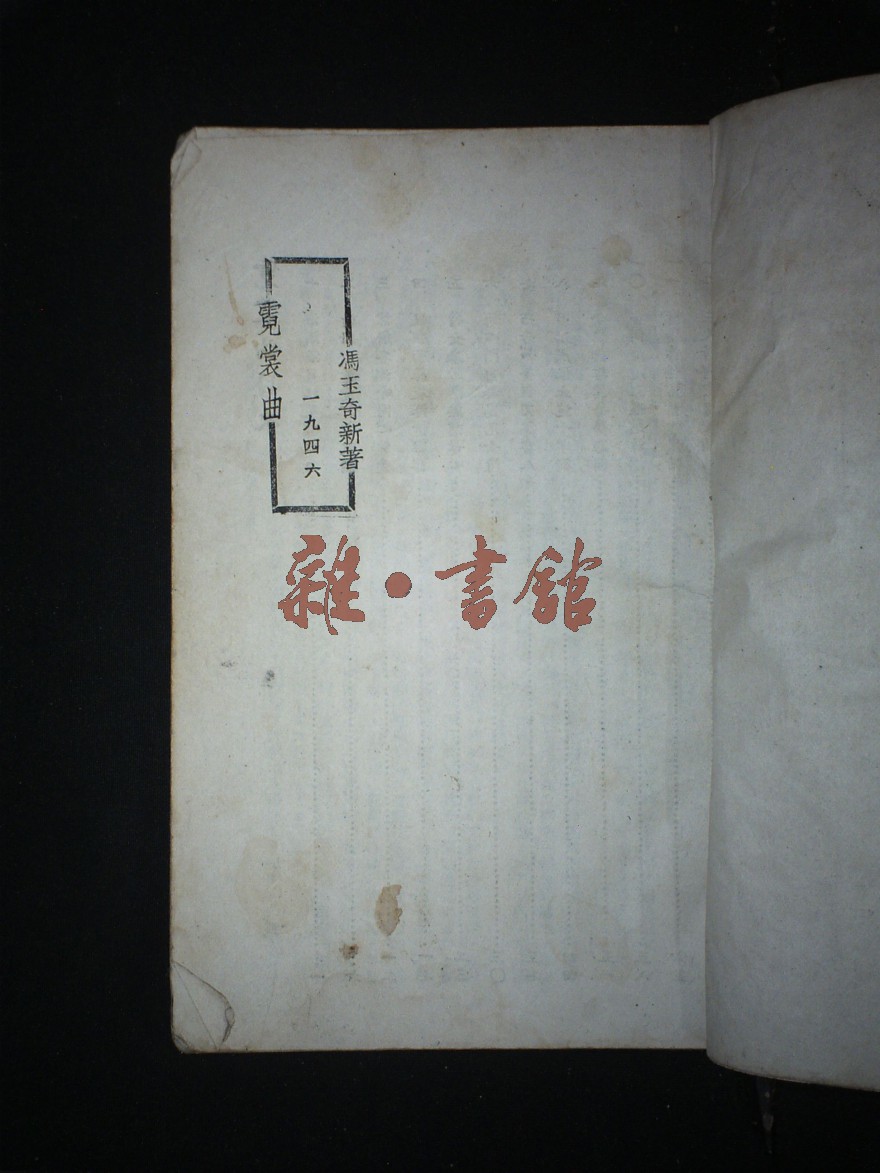 馮玉奇新著
一九四六
霓裳曲
雜·書館